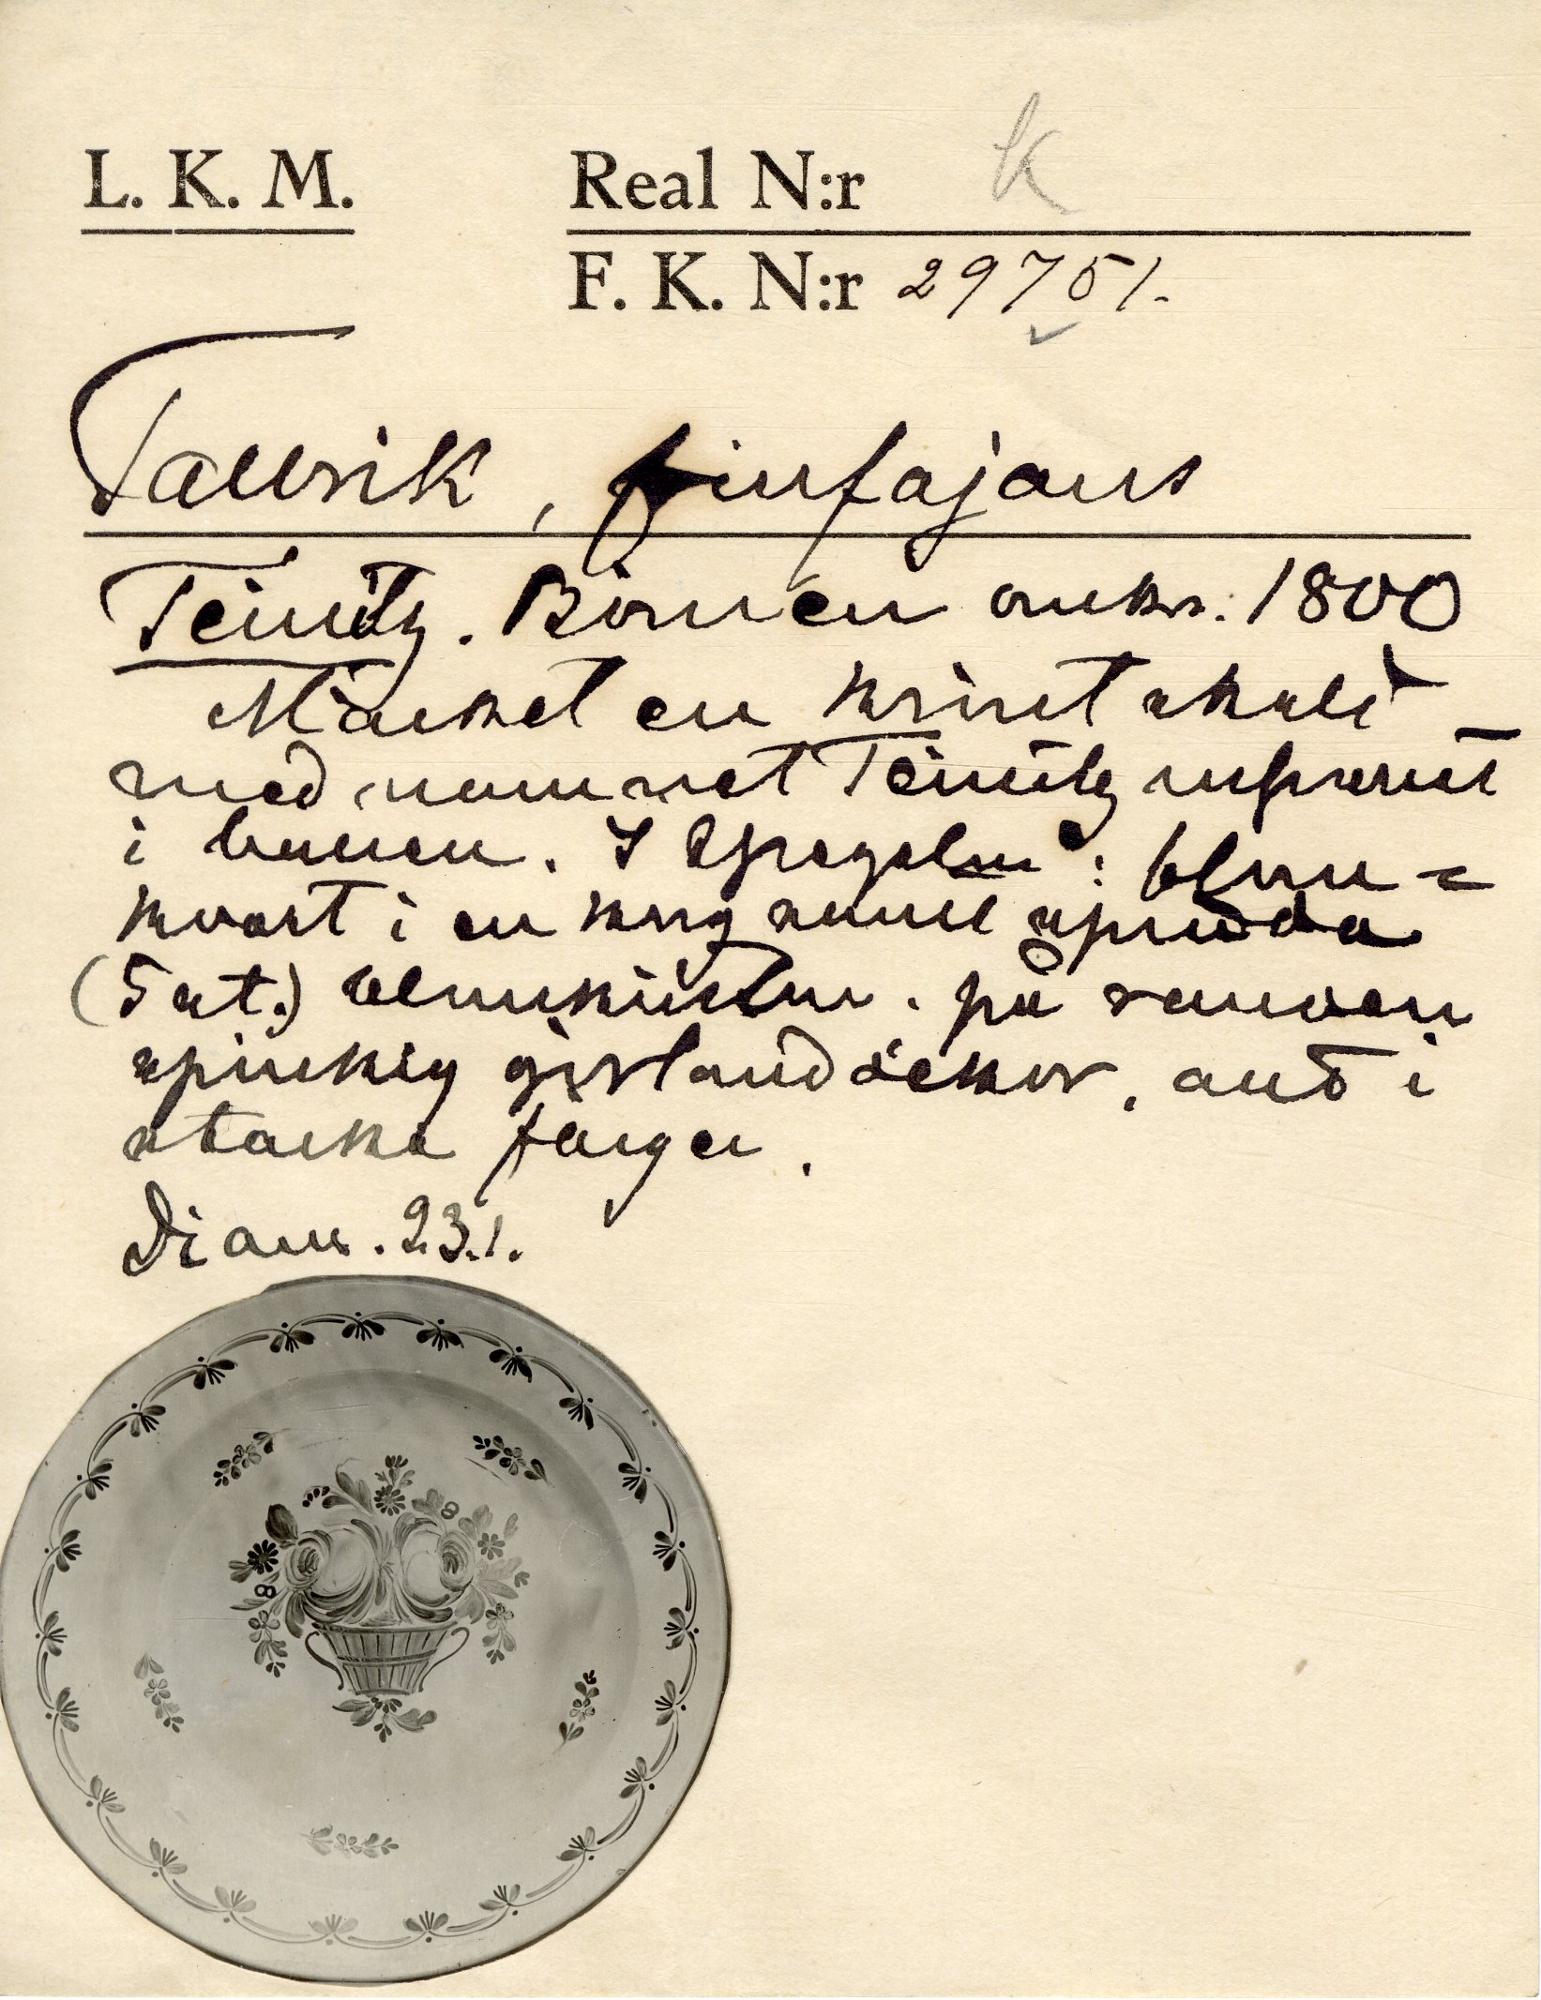 L. K. M. Real N:r K
F. K. N:r 29751.
Tallrik, finfajans
Teinitz. Börnen omkr. 1800
Märket en krönt sköld
med namnet Teinitz inpressat
i botten. I Spegeln: blom-
kvast i en korg samt spridda
(5 st.) blomkvistar. på randen
girlanddekor, allt i
starka färger.
Diam. 23.1.